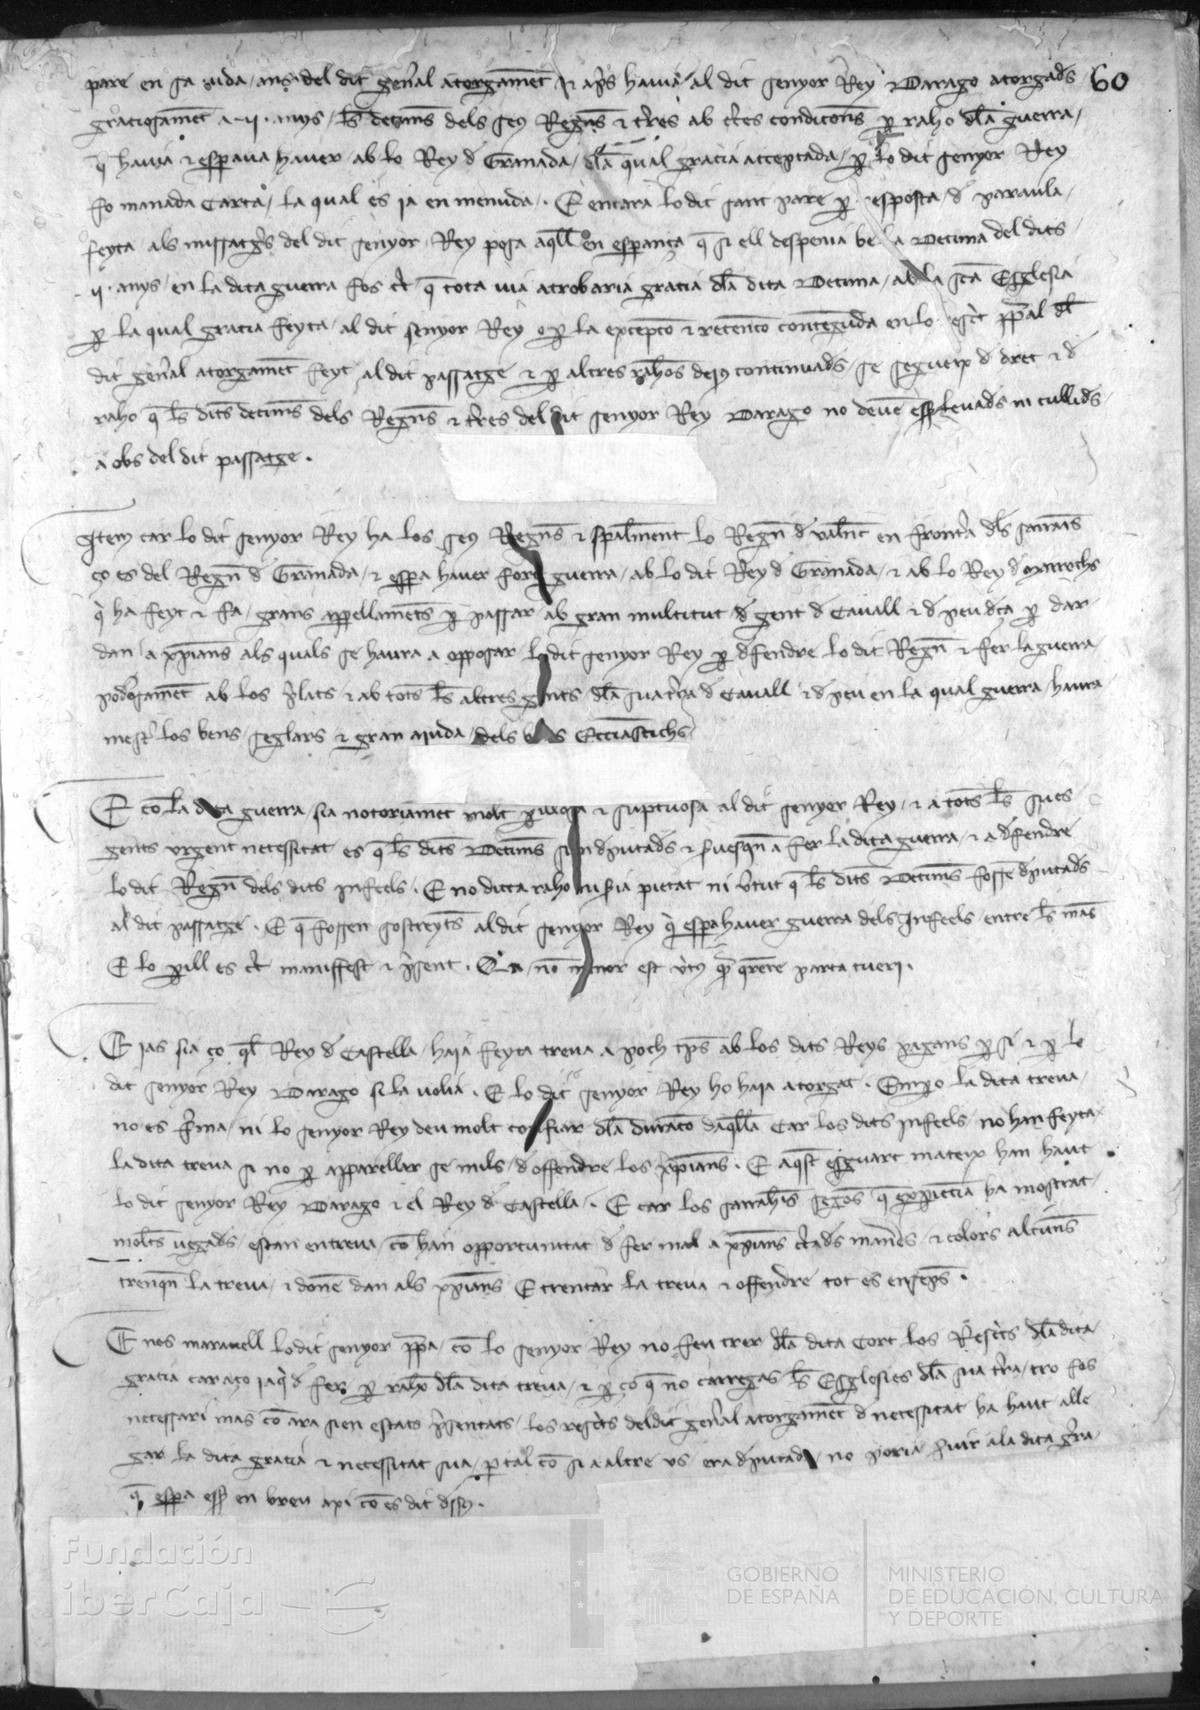 pare en sa vida ans del dit general atorgament et aprs havia al dit senyor Rey Darago atorgads 60
graciosament a .II. anys ls decims dels seus Regns et terres ab certes condicions per raho dla guerra
q havia et esperava haver ab lo Rey d Granada dla qual gracia acceptada per lo dit senyor Rey
fo manada carta la qual es ja en menuda. E encara lo dit sant pare per resposta d paraula
feyta als missatgers del dit senyor Rey posa aquell en esperança q si ell despenia be la decima dels dits
.II. anys en la dita guerra fos cert q tota via atrobaria gracia dla dita decima ab la sca Esglesia
per la qual gracia feyta al dit senyor Rey o per la excepcio et retencio contenguda en lo rescrit papal dl
dit general atorgament feyt al dit passatge et per altres rahos dejus continuads se segueix d dret et d
raho q ls dits decims dels Regns et terres del dit senyor Rey Darago no deuen esser levads ni cullids
a obs del dit passatge.
Item car lo dit senyor Rey ha los seus Regns et specialment lo Regn d Valent en frontera dls sarrains
ço es del Regn d Granada et espera haver fort guerra ab lo dit Rey d Granada et ab lo Rey d Marrochs
qui ha feyt et fa grans appellaments per passar ab gran multitut d gent d cavall et d peu dça per dar
dan a xpians als quals se haura a opposar lo dit senyor Rey per dfendre lo dit Regn et fer la guerra
poderosament ab los prelats et ab tots ls altres gents dla sua terra d cavall et d peu en la qual guerra haura
mester los bens seglars et gran ajuda dels bens Ecclesiastichs
E com la dita guerra sia notoriament molt perillosa et sumptuosa al dit senyor Rey et a tots ls sues
gents urgent necessitat es q ls dits decims sien dputads et servesquen a fer la dita guerra et a dfendre
lo dit Regn dels dits infeels. E no dicta raho ni seria pietat ni vertut q ls dits decims fossen dputads
al dit passatge. E q fossen sostreyts al dit senyor Rey qui espera haver guerra dels Infeels entre ls mans
E lo perill es cert maniffest et present. Quia non minor est virtus quam querere parta tueri.
E jas sia ço ql Rey d Castella haja feyta treva a poch temps ab los dits Reys pagans per si et per lo
dit senyor Rey Darago si la volia. E lo dit senyor Rey ho haja atorgat. Empero la dita treva
no es ferma ni lo senyor Rey deu molt confiar dla duracio daquella car los dits infeels no han feyta
la dita treva si no per apparellar se mils d offendre los xpians. E aquest esguart mateix han haut
lo dit senyor Rey Darago et el Rey d Castella. E car los sarrahins segons q experiencia ha mostrat
moltes vegads estan en treva com han opportunitat d fer mal a xpians certads maneres et colors alcuns
trenquen la treva et donen dan als xpians E trencar la treva et offendre tot es ensemps.
E nos maravell lo dit senyor papa com lo senyor Rey no feu trer dla dita Cort los Rescrits dla dita
gracia car aço jaquid fer per raho dla dita treva et per ço q no carregas ls Esglesies dla sua terra tro fos
necessari mas com ara sien estats presentats los rescrits del dit general atorgament d necessitat ha haut alle
gar la dita gracia et necessitat sua per tal com si a altre us era dputada no poria servir a la dita guerra
q espera esser en breu axi com es dit dessus.
Fundación
iberCaja
GOBIERNO
DE ESPAÑA
MINISTERIO
DE EDUCACIÓN, CULTURA
Y DEPORTE